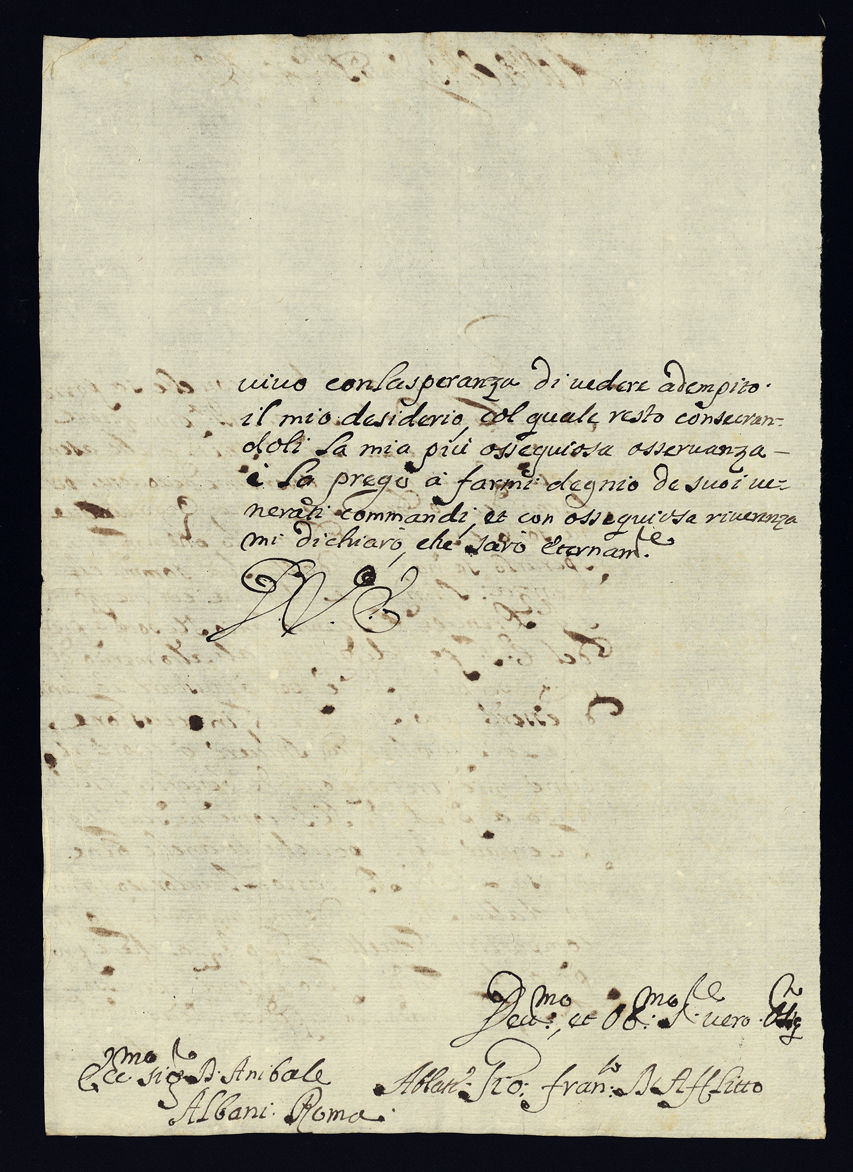 vivo con la speranza di vedere adempito
il mio desiderio, col quale resto consecran=
doli la mia più ossequiosa osservanza –
è la prego à farmi degnio de suoi ve=
nerati commandi, et con ossequiosa riverenza
mi dichiaro, che sarò Eternam.te
D. V. E.
Devmo: et Obmo: Sre vero
Eccmo sigre D. Anibale
Albani: Roma:
Gio: Franco D'Afflitto